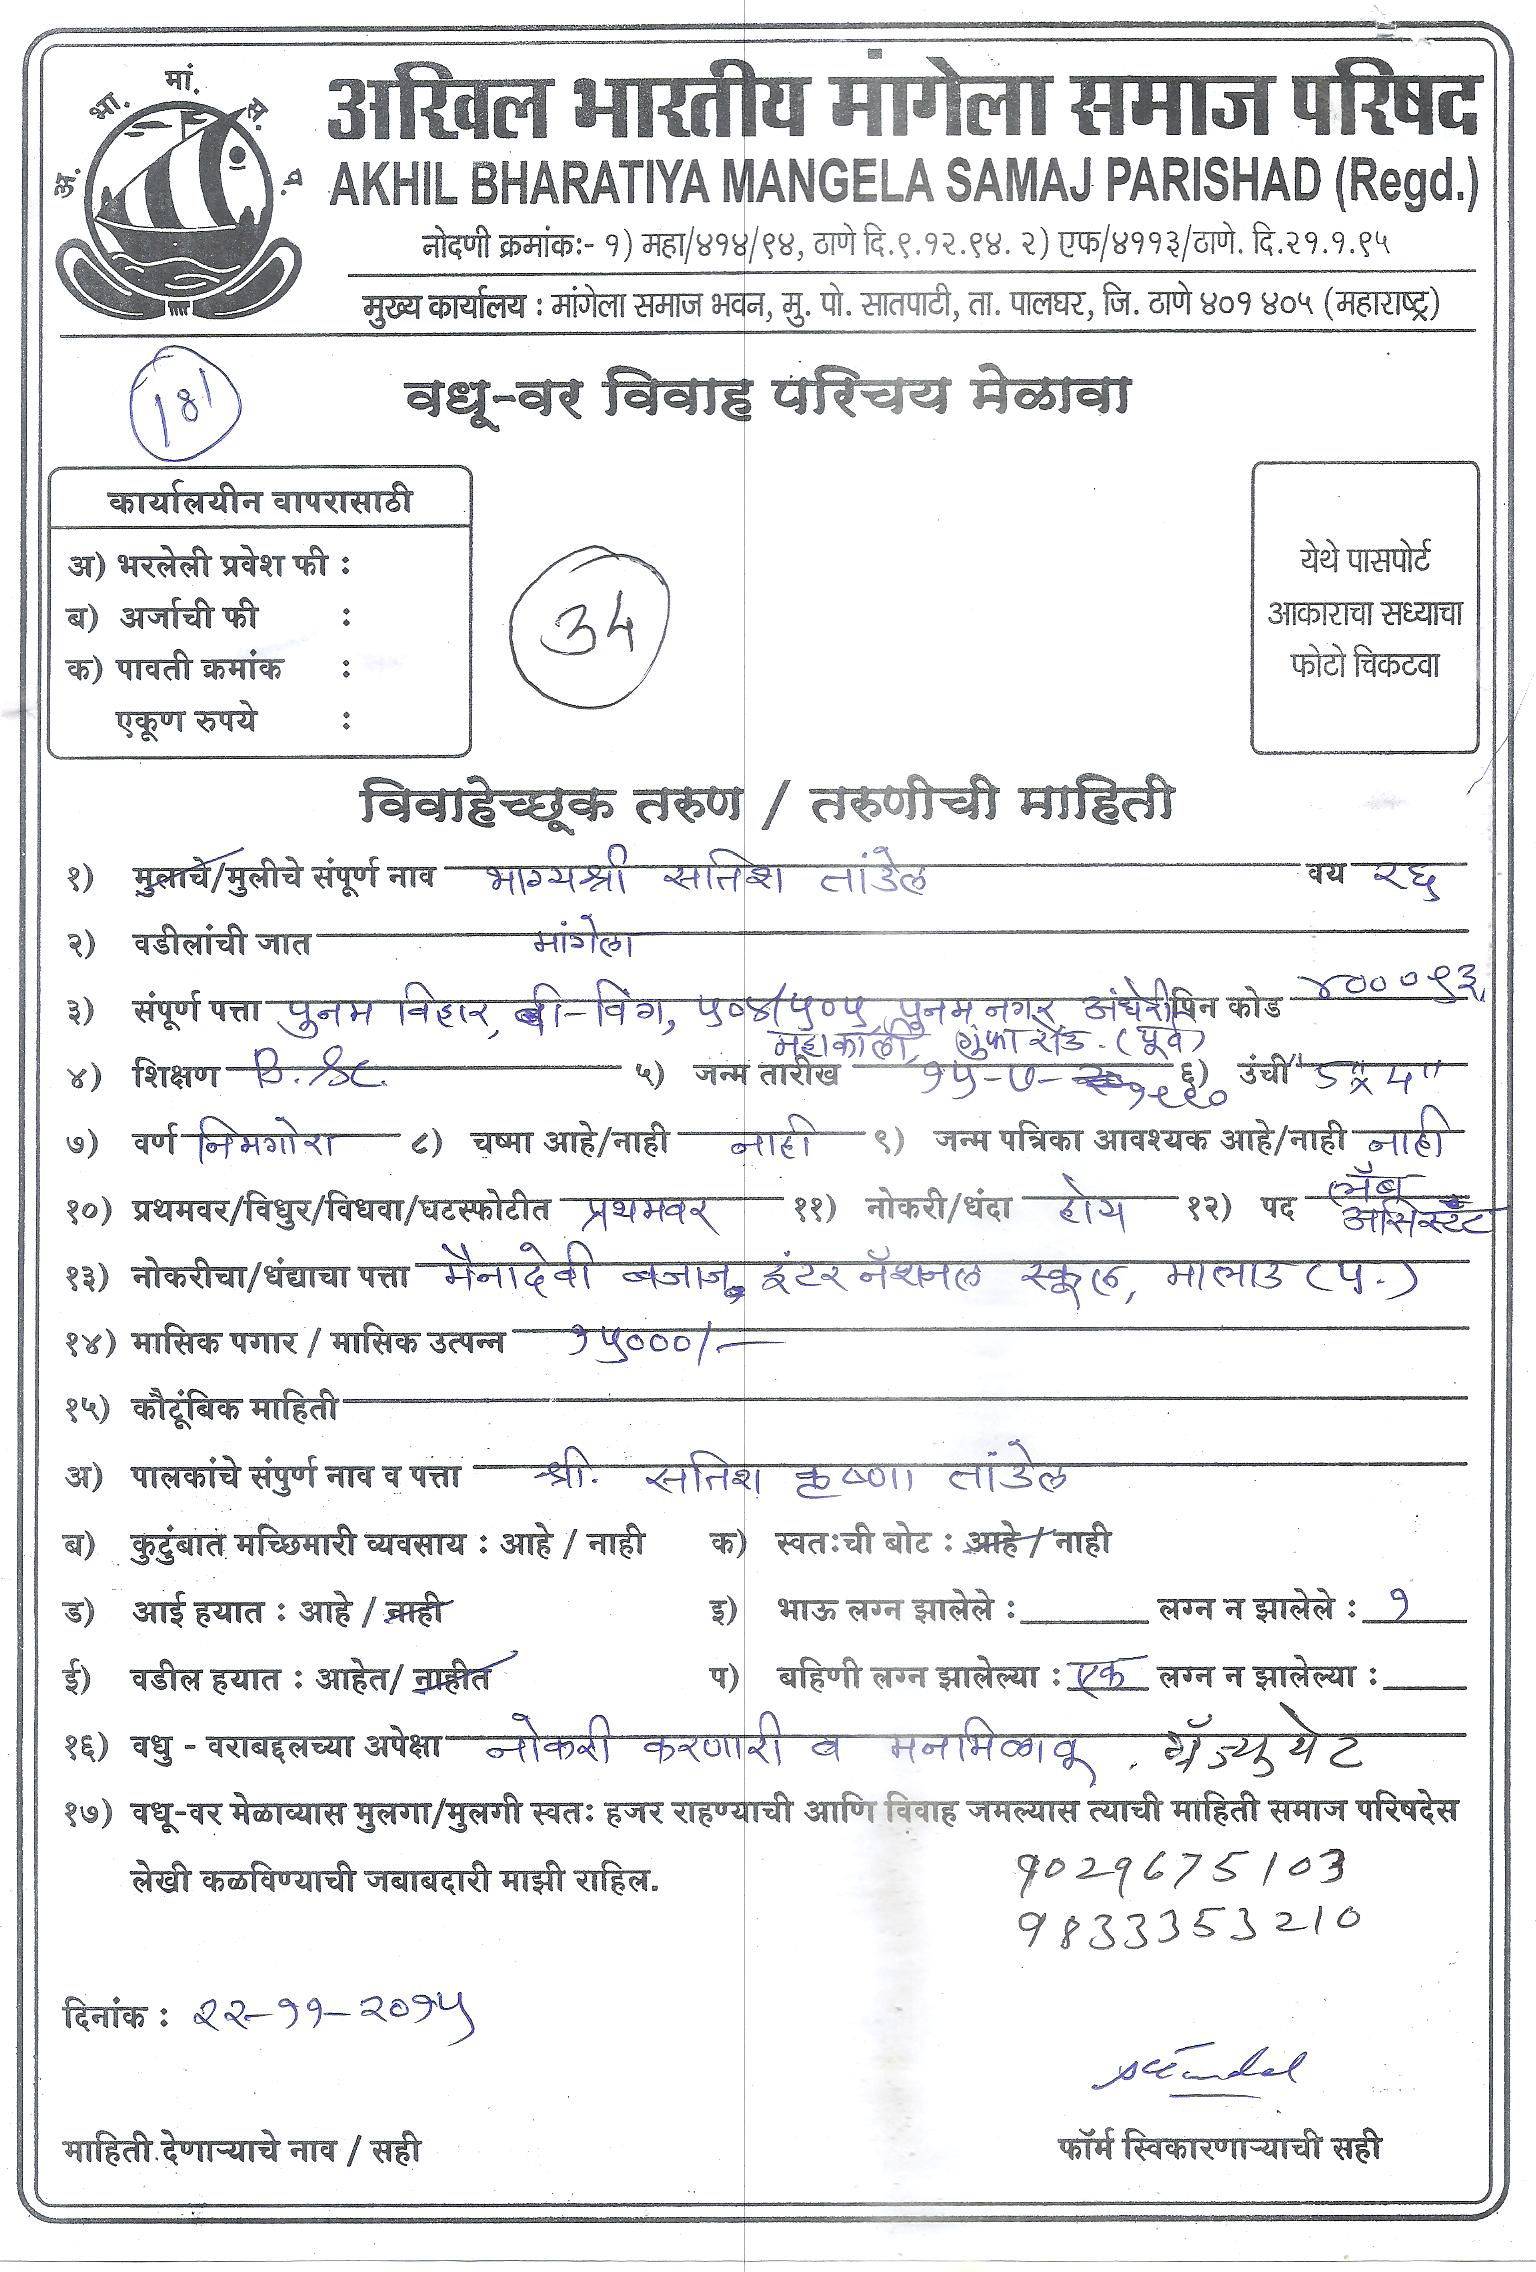 अ. भा. मां. स. प.
अखिल भारतीय मांगेला समाज परिषद
AKHIL BHARATIYA MANGELA SAMAJ PARISHAD (Regd.)
नोदणी क्रमांकः- १) महा/४१४/९४, ठाणे दि.९.१२.९४. २) एफ/४११३/ठाणे. दि.२१.१.९५
मुख्य कार्यालय : मांगेला समाज भवन, मु. पो. सातपाटी, ता. पालघर, जि. ठाणे ४०१ ४०५ (महाराष्ट्र)
181
वधू-वर विवाह परिचय मेळावा
कार्यालयीन वापरासाठी
अ) भरलेली प्रवेश फी :
ब) अर्जाची फी :
क) पावती क्रमांक :
एकूण रुपये :
34
येथे पासपोर्ट
आकाराचा सध्याचा
फोटो चिकटवा
विवाहेच्छूक तरुण / तरुणीची माहिती
१) मुलाचे/मुलीचे संपूर्ण नाव भाग्यश्री सतिश तांडेल वय २६
२) वडीलांची जात मांगेला
३) संपूर्ण पत्ता पुनम विहार, बी-विंग, ५०४/५०५ पुनम नगर अंधेरी पिन कोड ४०००९३
महाकाली, गुंफा रोड. (पूर्व)
४) शिक्षण B.Sc. ५) जन्म तारीख १५-७-१९९० ६) उंची 5" x 4"
७) वर्ण निमगोरा ८) चष्मा आहे/नाही नाही ९) जन्म पत्रिका आवश्यक आहे/नाही नाही
१०) प्रथमवर/विधुर/विधवा/घटस्फोटीत प्रथमवर ११) नोकरी/धंदा होय १२) पद लॅब असिस्टंट
१३) नोकरीचा/धंद्याचा पत्ता मैनादेवी बजाज इंटरनॅशनल स्कूल, मालाड (प.)
१४) मासिक पगार / मासिक उत्पन्न १५०००/-
१५) कौटूंबिक माहिती
अ) पालकांचे संपुर्ण नाव व पत्ता श्री. सतिश कृष्णा तांडेल
ब) कुटुंबात मच्छिमारी व्यवसाय : आहे / नाही क) स्वतःची बोट : आहे / नाही
ड) आई हयात : आहे / नाही इ) भाऊ लग्न झालेले : लग्न न झालेले : १
ई) वडील हयात : आहेत/ नाहीत प) बहिणी लग्न झालेल्या : एक लग्न न झालेल्या :
१६) वधु - वराबद्दलच्या अपेक्षा नोकरी करणारी व मनमिळावू . ग्रॅज्युयेट
१७) वधू-वर मेळाव्यास मुलगा/मुलगी स्वतः हजर राहण्याची आणि विवाह जमल्यास त्याची माहिती समाज परिषदेस
लेखी कळविण्याची जबाबदारी माझी राहिल.
9029675103
9833353210
दिनांक : २२-११-२०१५
माहिती देणाऱ्याचे नाव / सही फॉर्म स्विकारणाऱ्याची सही